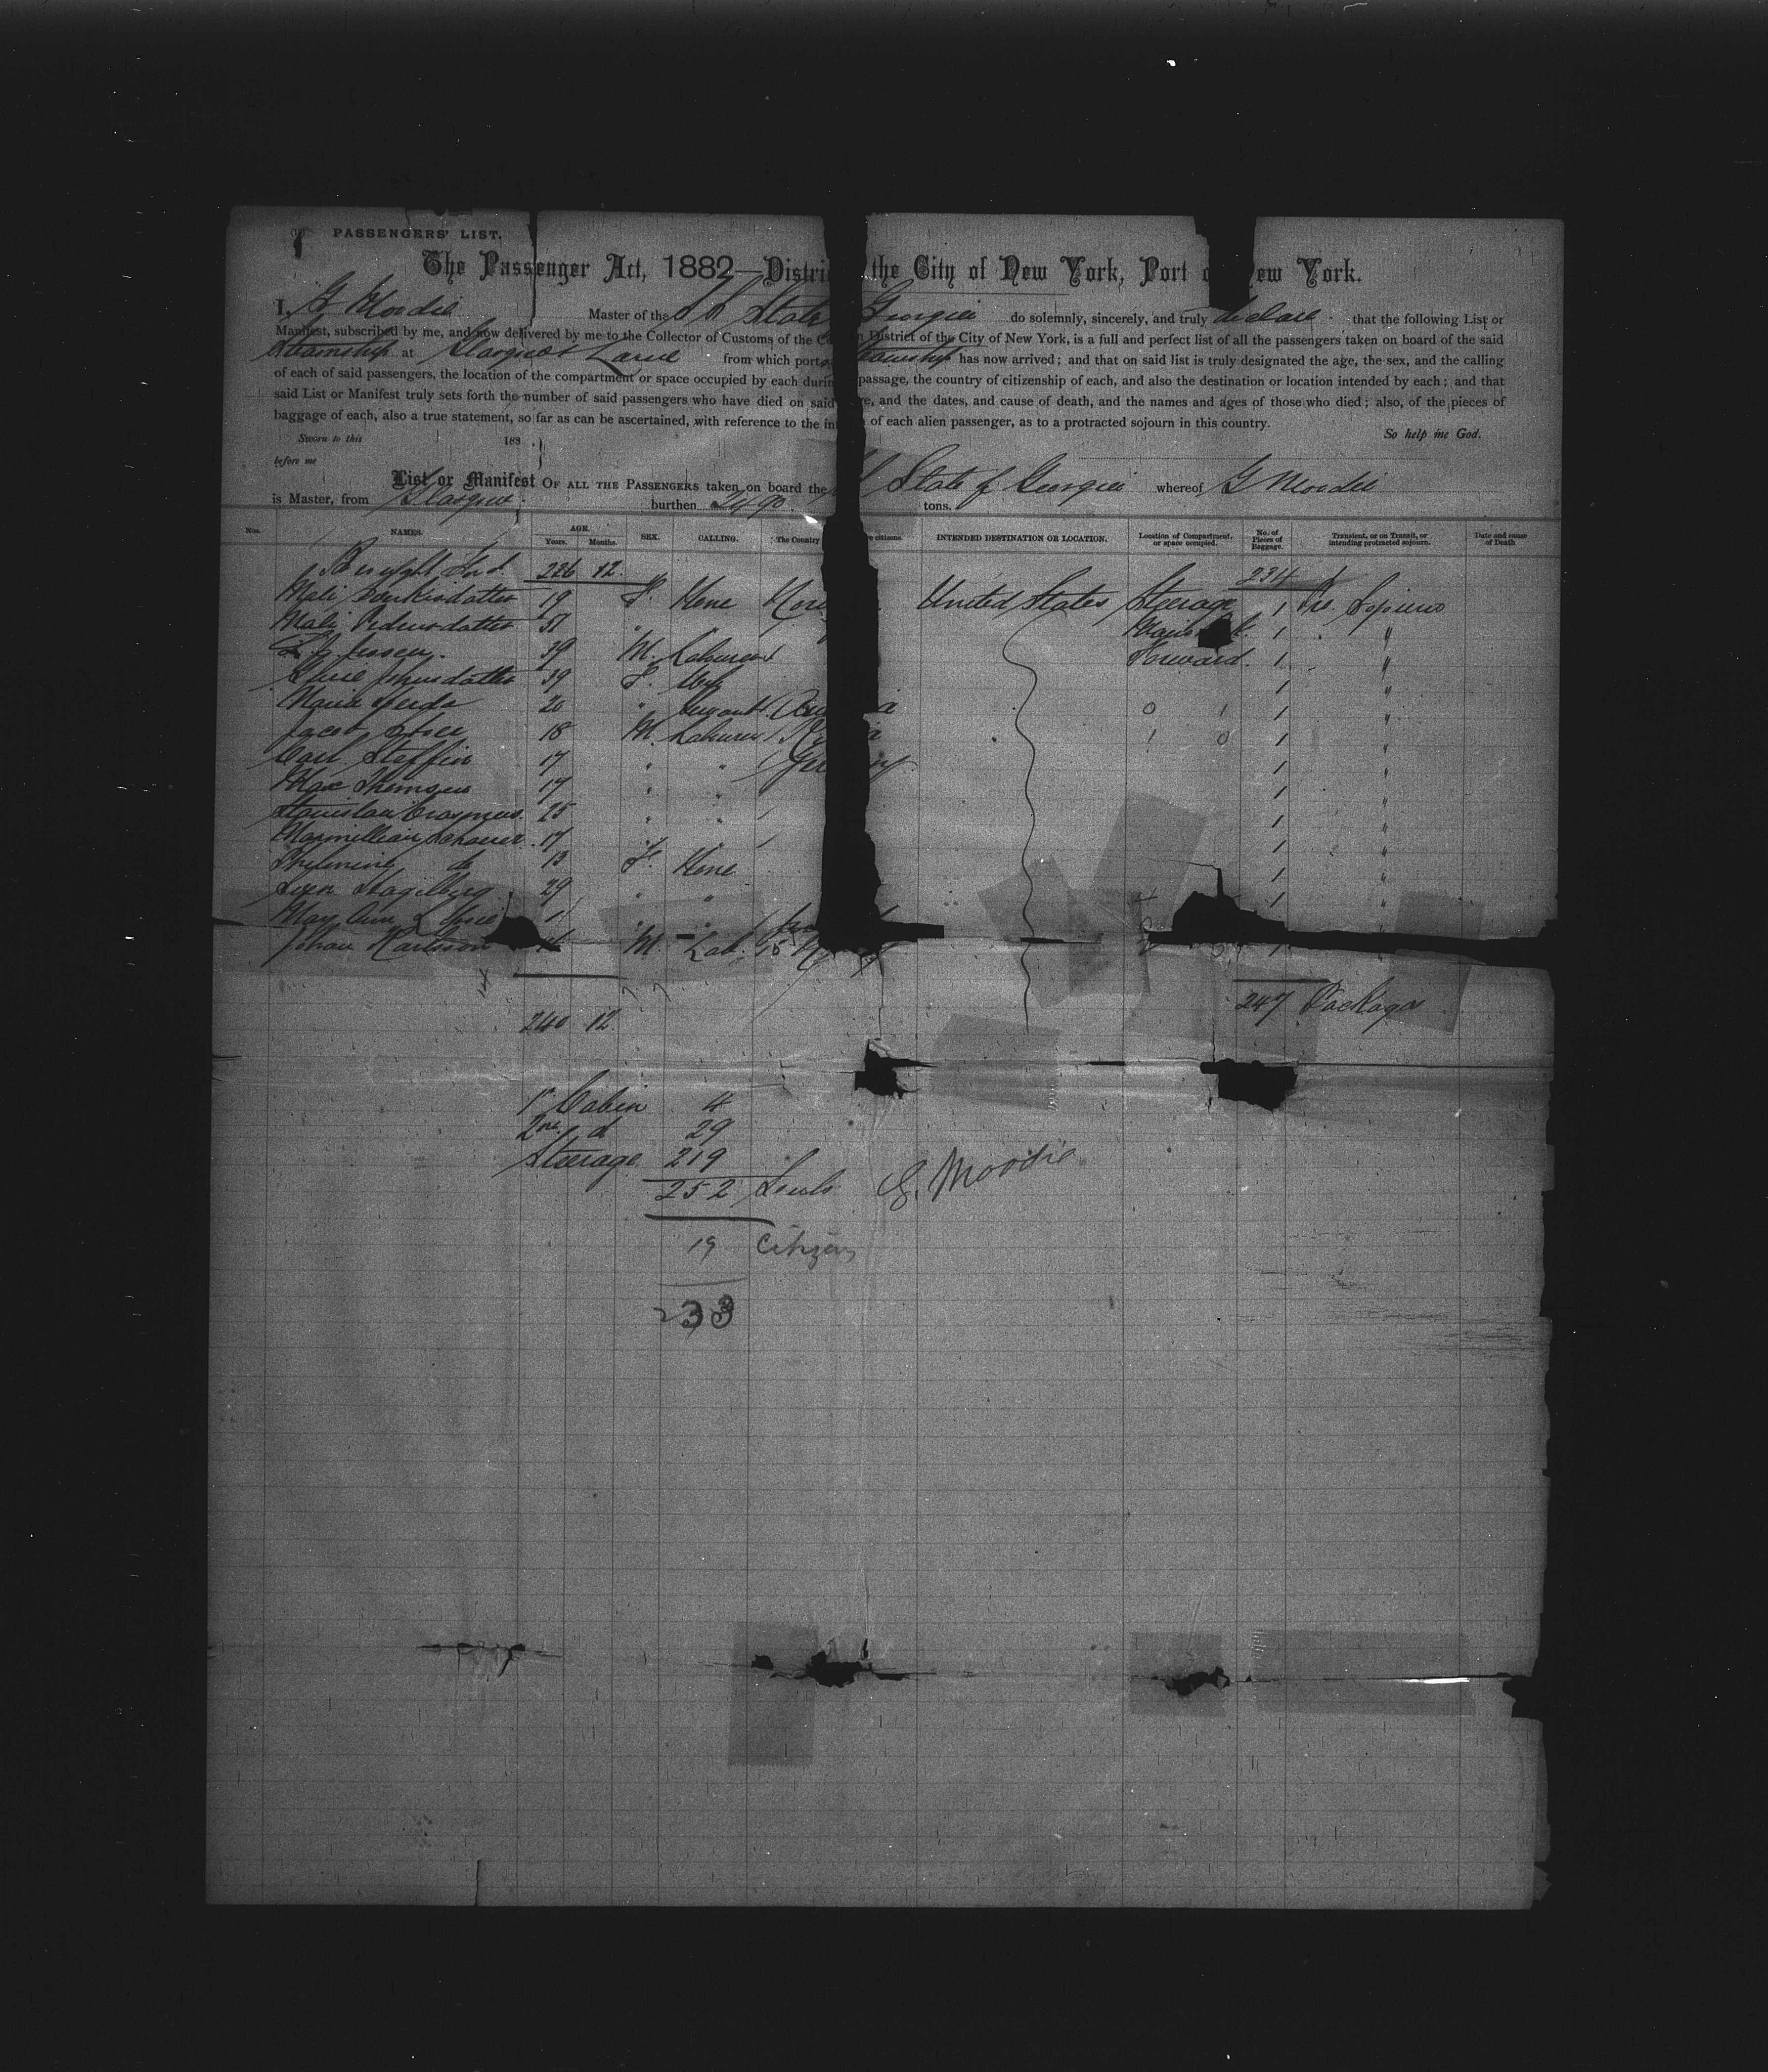 PASSENGERS' LIST.
The Passenger Act, 1882—Distri the City of New York, Port o ew York.
I, G Moodie Master of the State Georgia do solemnly, sincerely, and truly declare that the following List or
Manifest, subscribed by me, and now delivered by me to the Collector of Customs of the C n District of the City of New York, is a full and perfect list of all the passengers taken on board of the said
Steamship at Glasgow & Larne from which port has now arrived; and that on said list is truly designated the age, the sex, and the calling
of each of said passengers, the location of the compartment or space occupied by each durin passage, the country of citizenship of each, and also the destination or location intended by each; and that
said List or Manifest truly sets forth the number of said passengers who have died on said e, and the dates, and cause of death, and the names and ages of those who died; also, of the pieces of
baggage of each, also a true statement, so far as can be ascertained, with reference to the in of each alien passenger, as to a protracted sojourn in this country.
Sworn to this 188 So help me God.
before me
List or Manifest OF ALL THE PASSENGERS taken on board the State of Georgia whereof G Moodie
is Master, from Glasgow burthen 2490 tons.
Nos. NAMES. AGE. Years. Months. SEX. CALLING. The Country e citizens. INTENDED DESTINATION OR LOCATION. Location of Compartment, or space occupied. No. of Pieces of Baggage. Transient, or on Transit, or intending protracted sojourn. Date and cause of Death
Brought Ford 226 12 234
Mali 19 F. None Nor United States Steerage 1 Pro. Sojourn
Mali Pedersdatter 51 " 1 "
Jensen 39 M. Labourer Forward 1 "
Johnsdatter 39 F. Wife 1 "
Maria 20 " Servant a 0 1 1 "
Jacob 18 M. Labourer R a 1 0 1 "
Carl Steffin 17 " " Ger ny 1 "
Max Thomsen 17 " " 1 "
Stanislau 25 " " 1 "
Maxmillian Schauer 17 " " 1 "
do 13 F. None 1 "
29 " " 1 "
May Ann
Johan Karlsson M. Lab. 1
240 12 247 Packages
1st Cabin 4
2nd d 29
Steerage 219
252 Souls G. Moodie
19 Citizens
233